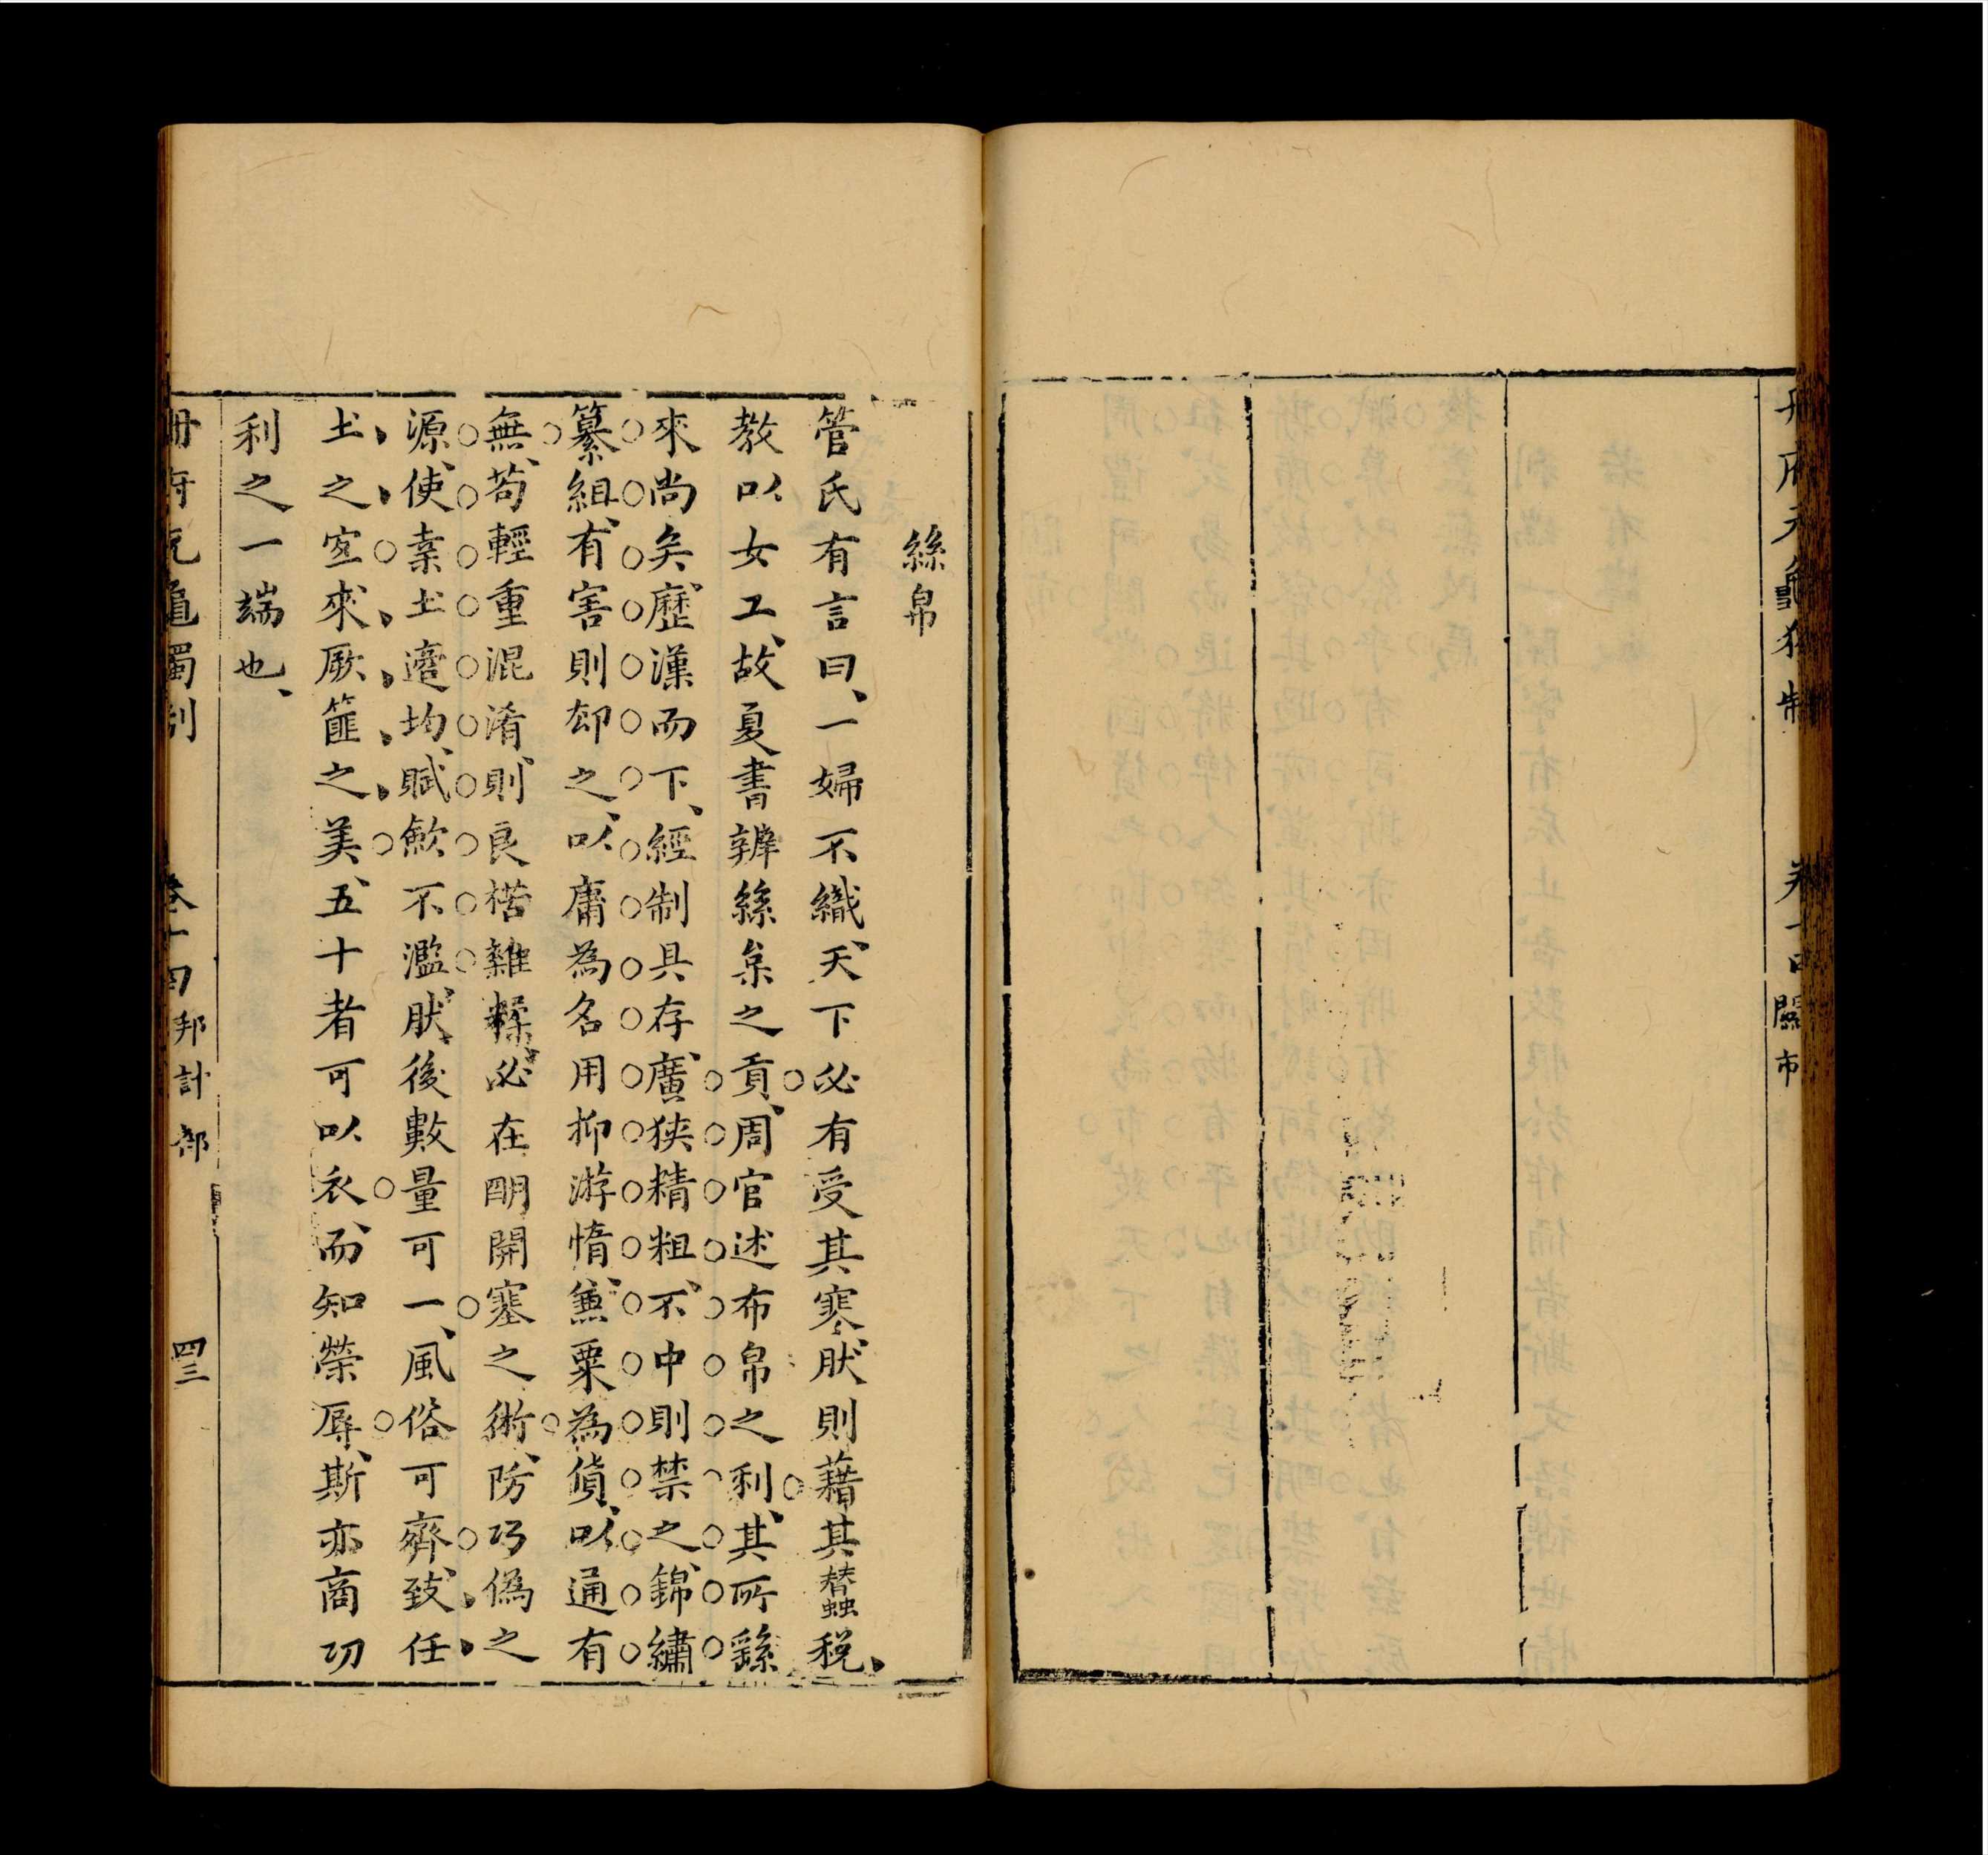 冊府元龜獨制
卷十四關市
絲帛
管氏有言曰、一婦不織、天下必有受其寒、肰則藉其蠶稅、
教以女工、故夏書辨絲枲之貢、周官述布帛之利、其所繇
來尚矣、歷漢而下、經制具存、廣狹精粗、不中則禁之、錦繡
纂組、有害則却之、以庸為名、用抑游惰、兼粟為貨、以通有
無、苟輕重混淆、則良楛雜糅、必在明開塞之術、防巧偽之
源、使壤土適均、賦歛不濫、肰後數量可一、風俗可齊、致任
土之宜、來厥篚之美、五十者可以衣、而知榮辱、斯亦商功
利之一端也、
冊府元龜獨制
卷十四邦計部
四三